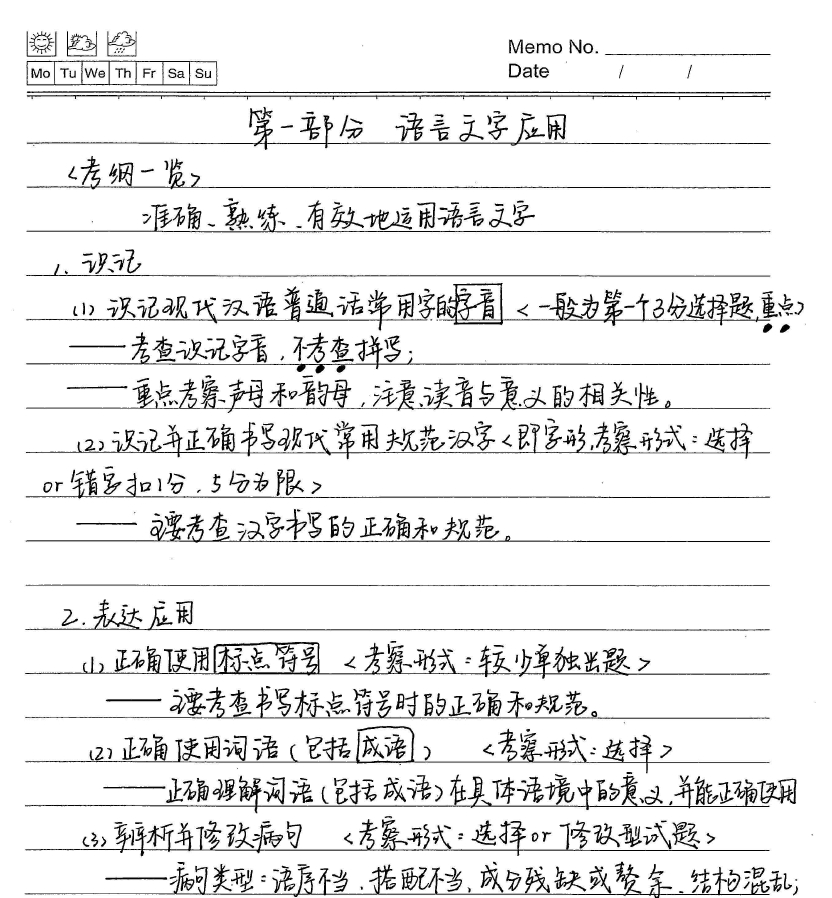 Memo No.
Mo Tu We Th Fr Sa Su
Date / /
第一部分 语言文字应用
<考纲一览>
准确、熟练、有效地运用语言文字
1. 识记
(1) 识记现代汉语普通话常用字的字音 <一般为第一个3分选择题,重点>
——考查识记字音，不考查拼写；
——重点考察声母和韵母，注意读音与意义的相关性。
(2) 识记并正确书写现代常用规范汉字<即字形,考察形式：选择
or 错字扣1分，5分为限>
——主要考查汉字书写的正确和规范。
2. 表达应用
(1) 正确使用标点符号 <考察形式：较少单独出题>
——主要考查书写标点符号时的正确和规范。
(2) 正确使用词语(包括成语) <考察形式：选择>
——正确理解词语(包括成语)在具体语境中的意义，并能正确使用
(3) 辨析并修改病句 <考察形式：选择or 修改型试题>
——病句类型：语序不当、搭配不当、成分残缺或赘余、结构混乱；